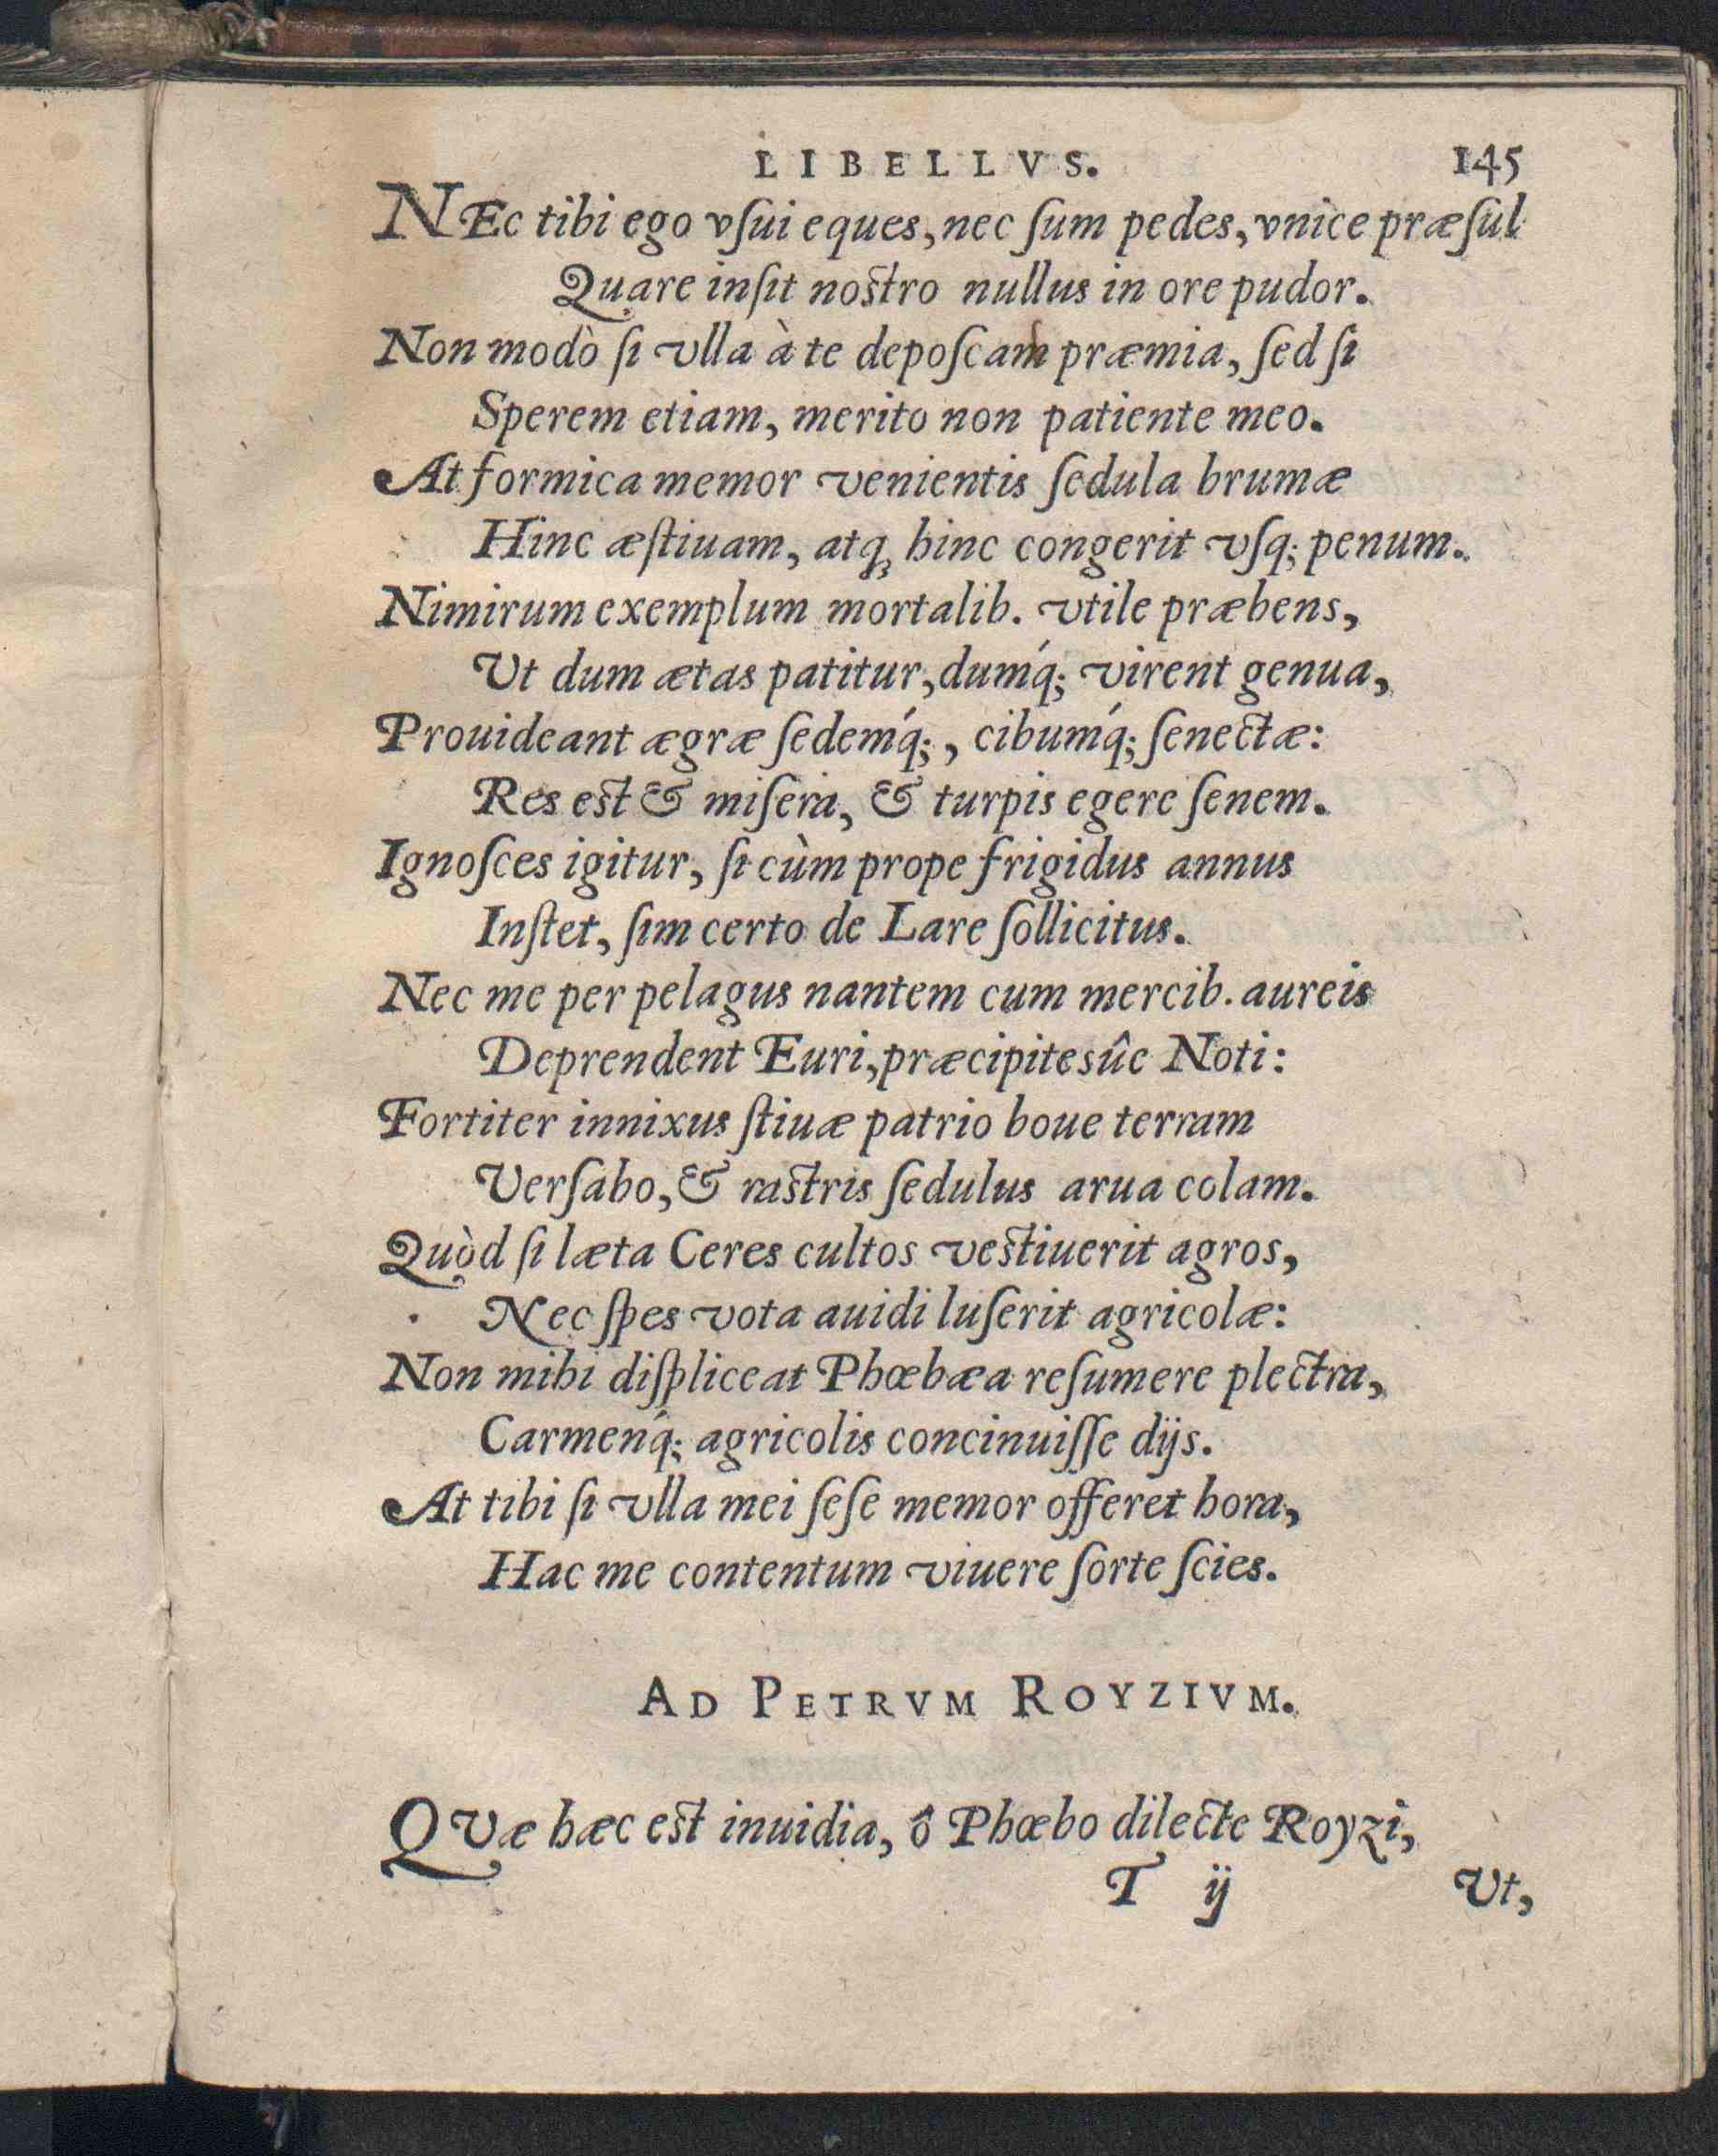 LIBELLVS. 145
NEc tibi ego vſui eques, nec ſum pedes, vnice præſul
Quare inſit noſtro nullus in ore pudor.
Non modò ſi vlla à te depoſcam præmia, ſed ſi
Sperem etiam, merito non patiente meo.
At formica memor venientis ſedula brumæ
Hinc æſtiuam, atq; hinc congerit vſq; penum.
Nimirum exemplum mortalib. vtile præbens,
Ut dum ætas patitur, dumq́; virent genua,
Prouideant ægræ ſedemq́;, cibumq́; ſenectæ:
Res eſt & miſera, & turpis egere ſenem.
Ignoſces igitur, ſi cùm prope frigidus annus
Inſtet, ſim certo de Lare ſollicitus.
Nec me per pelagus nantem cum mercib. aureis
Deprendent Euri, præcipitesûe Noti:
Fortiter innixus ſtiuæ patrio boue terram
Verſabo, & raſtris ſedulus arua colam.
Quòd ſi læta Ceres cultos veſtiuerit agros,
Nec ſpes vota auidi luſerit agricolæ:
Non mihi diſpliceat Phœbæa reſumere plectra,
Carmenq́; agricolis concinuiſſe dijs.
At tibi ſi vlla mei ſeſe memor offeret hora,
Hac me contentum viuere ſorte ſcies.
AD PETRVM ROYZIVM.
QVæ hæc eſt inuidia, ô Phœbo dilecte Royzi,
T ij Ut,